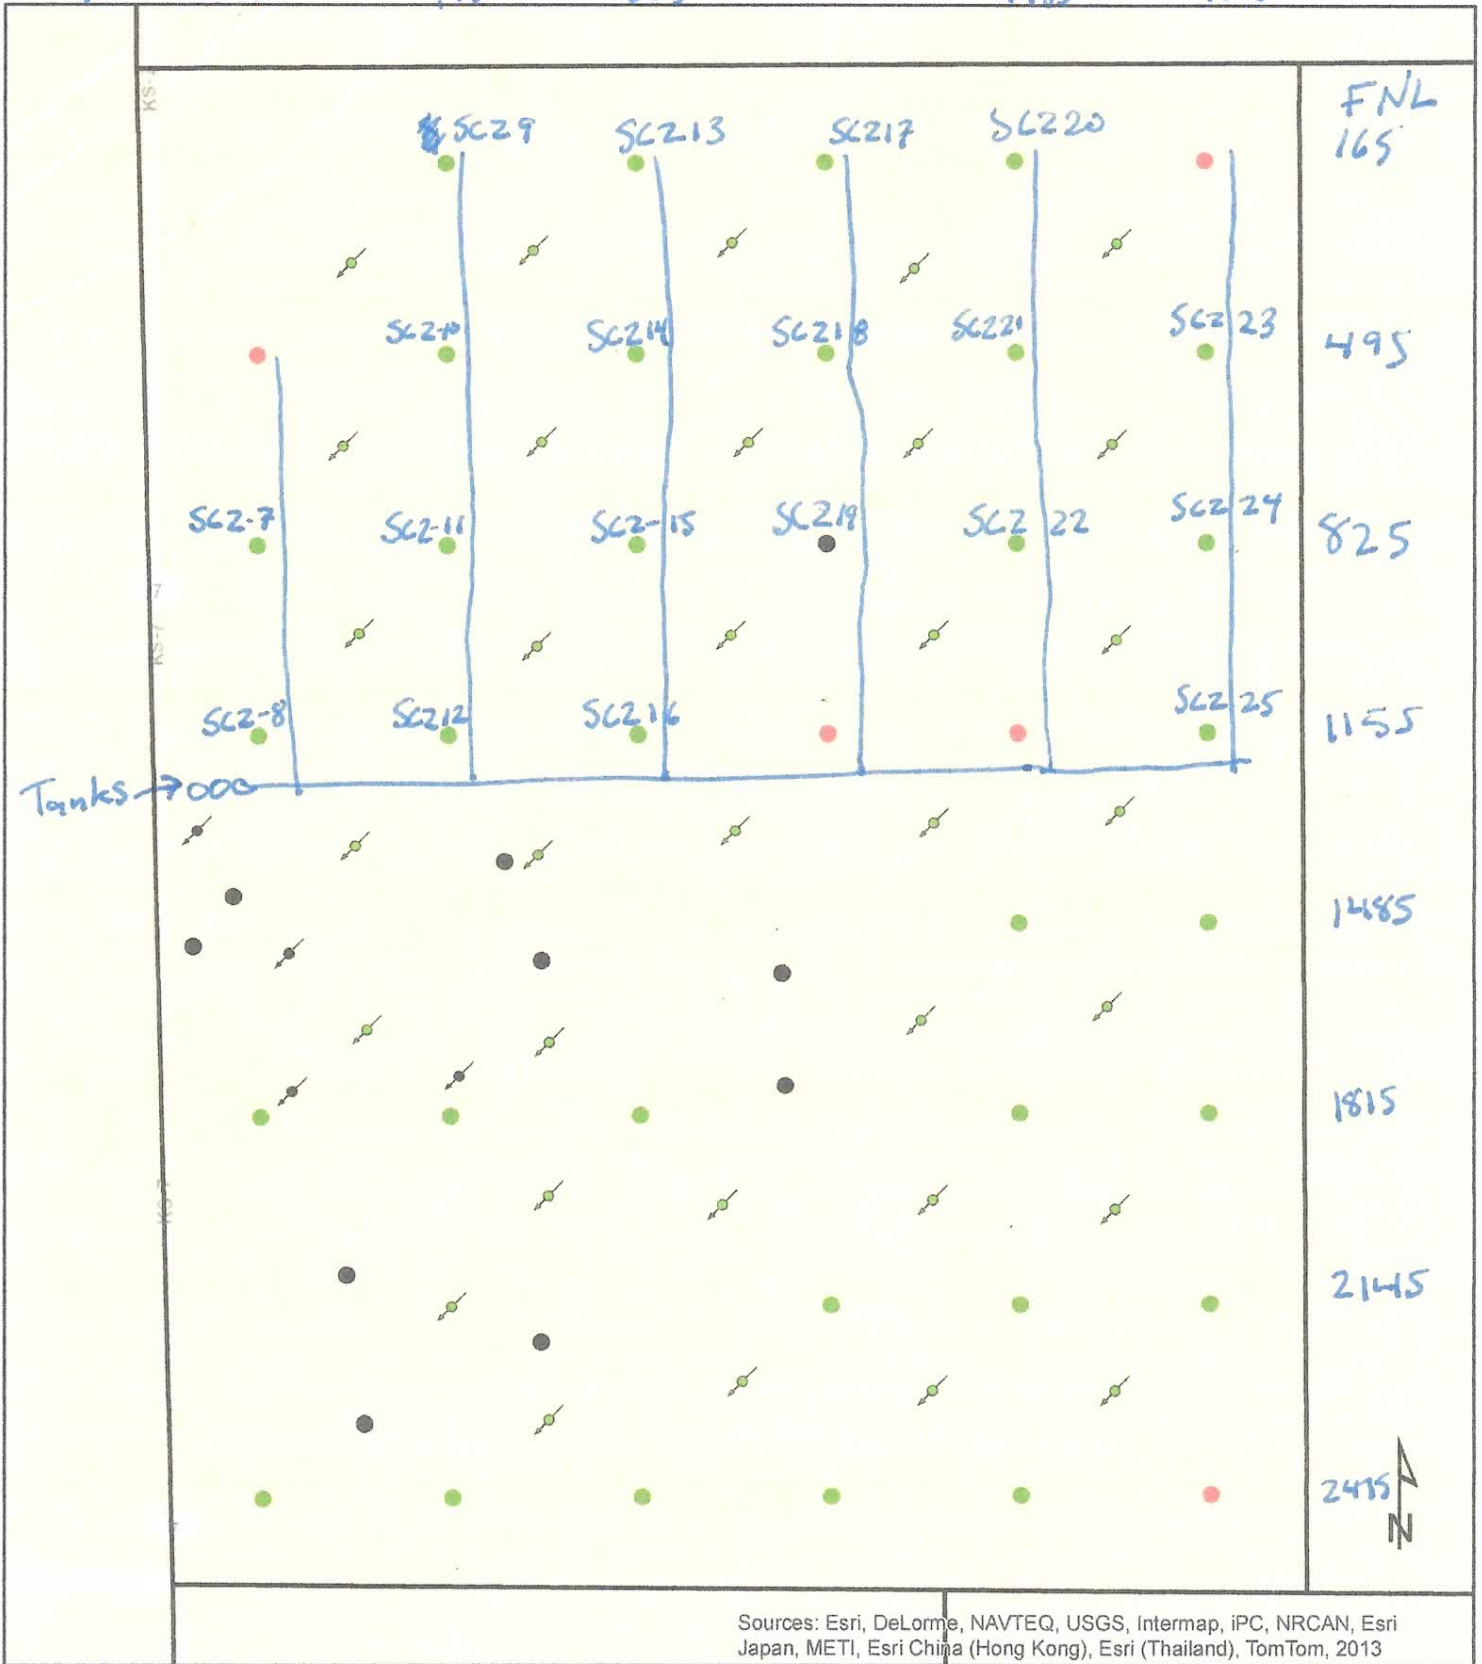 FNL
SCZ9 SCZ13 SCZ17 SCZ20 165
SCZ-10 SCZ14 SCZ18 SCZ21 SCZ 23 495
SCZ-7 SCZ-11 SCZ-15 SCZ19 SCZ 22 SCZ 24 825
SCZ-8 SCZ12 SCZ16 SCZ 25 1155
Tanks
1485
1815
KS-7
2145
2475
N
Sources: Esri, DeLorme, NAVTEQ, USGS, Intermap, iPC, NRCAN, Esri
Japan, METI, Esri China (Hong Kong), Esri (Thailand), TomTom, 2013